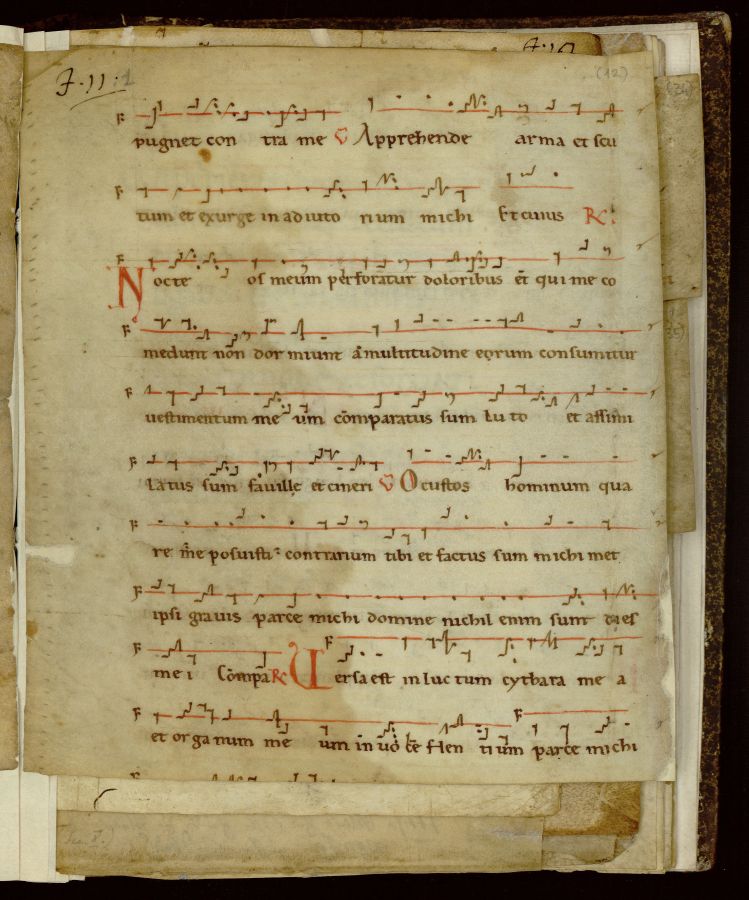 F·11·1
(12)
pugnet con tra me ℣ Apprehende arma et scu
tum et exurge in adiuto rium michi Et cuius ℟:
Nocte os meum perforatur doloribus et qui me co
medunt non dor miunt a multitudine eorum consumitur
vestimentum me um comparatus sum lu to et assimi
latus sum favillę et cineri ℣ O custos hominum qua
re me posuisti contrarium tibi et factus sum michi met
ipsi gravis parce michi domine nichil enim sunt dies
me i Compa ℟ Versa est in luc tum cythara me a
et or ga num me um in vo ce flen ti um parce michi